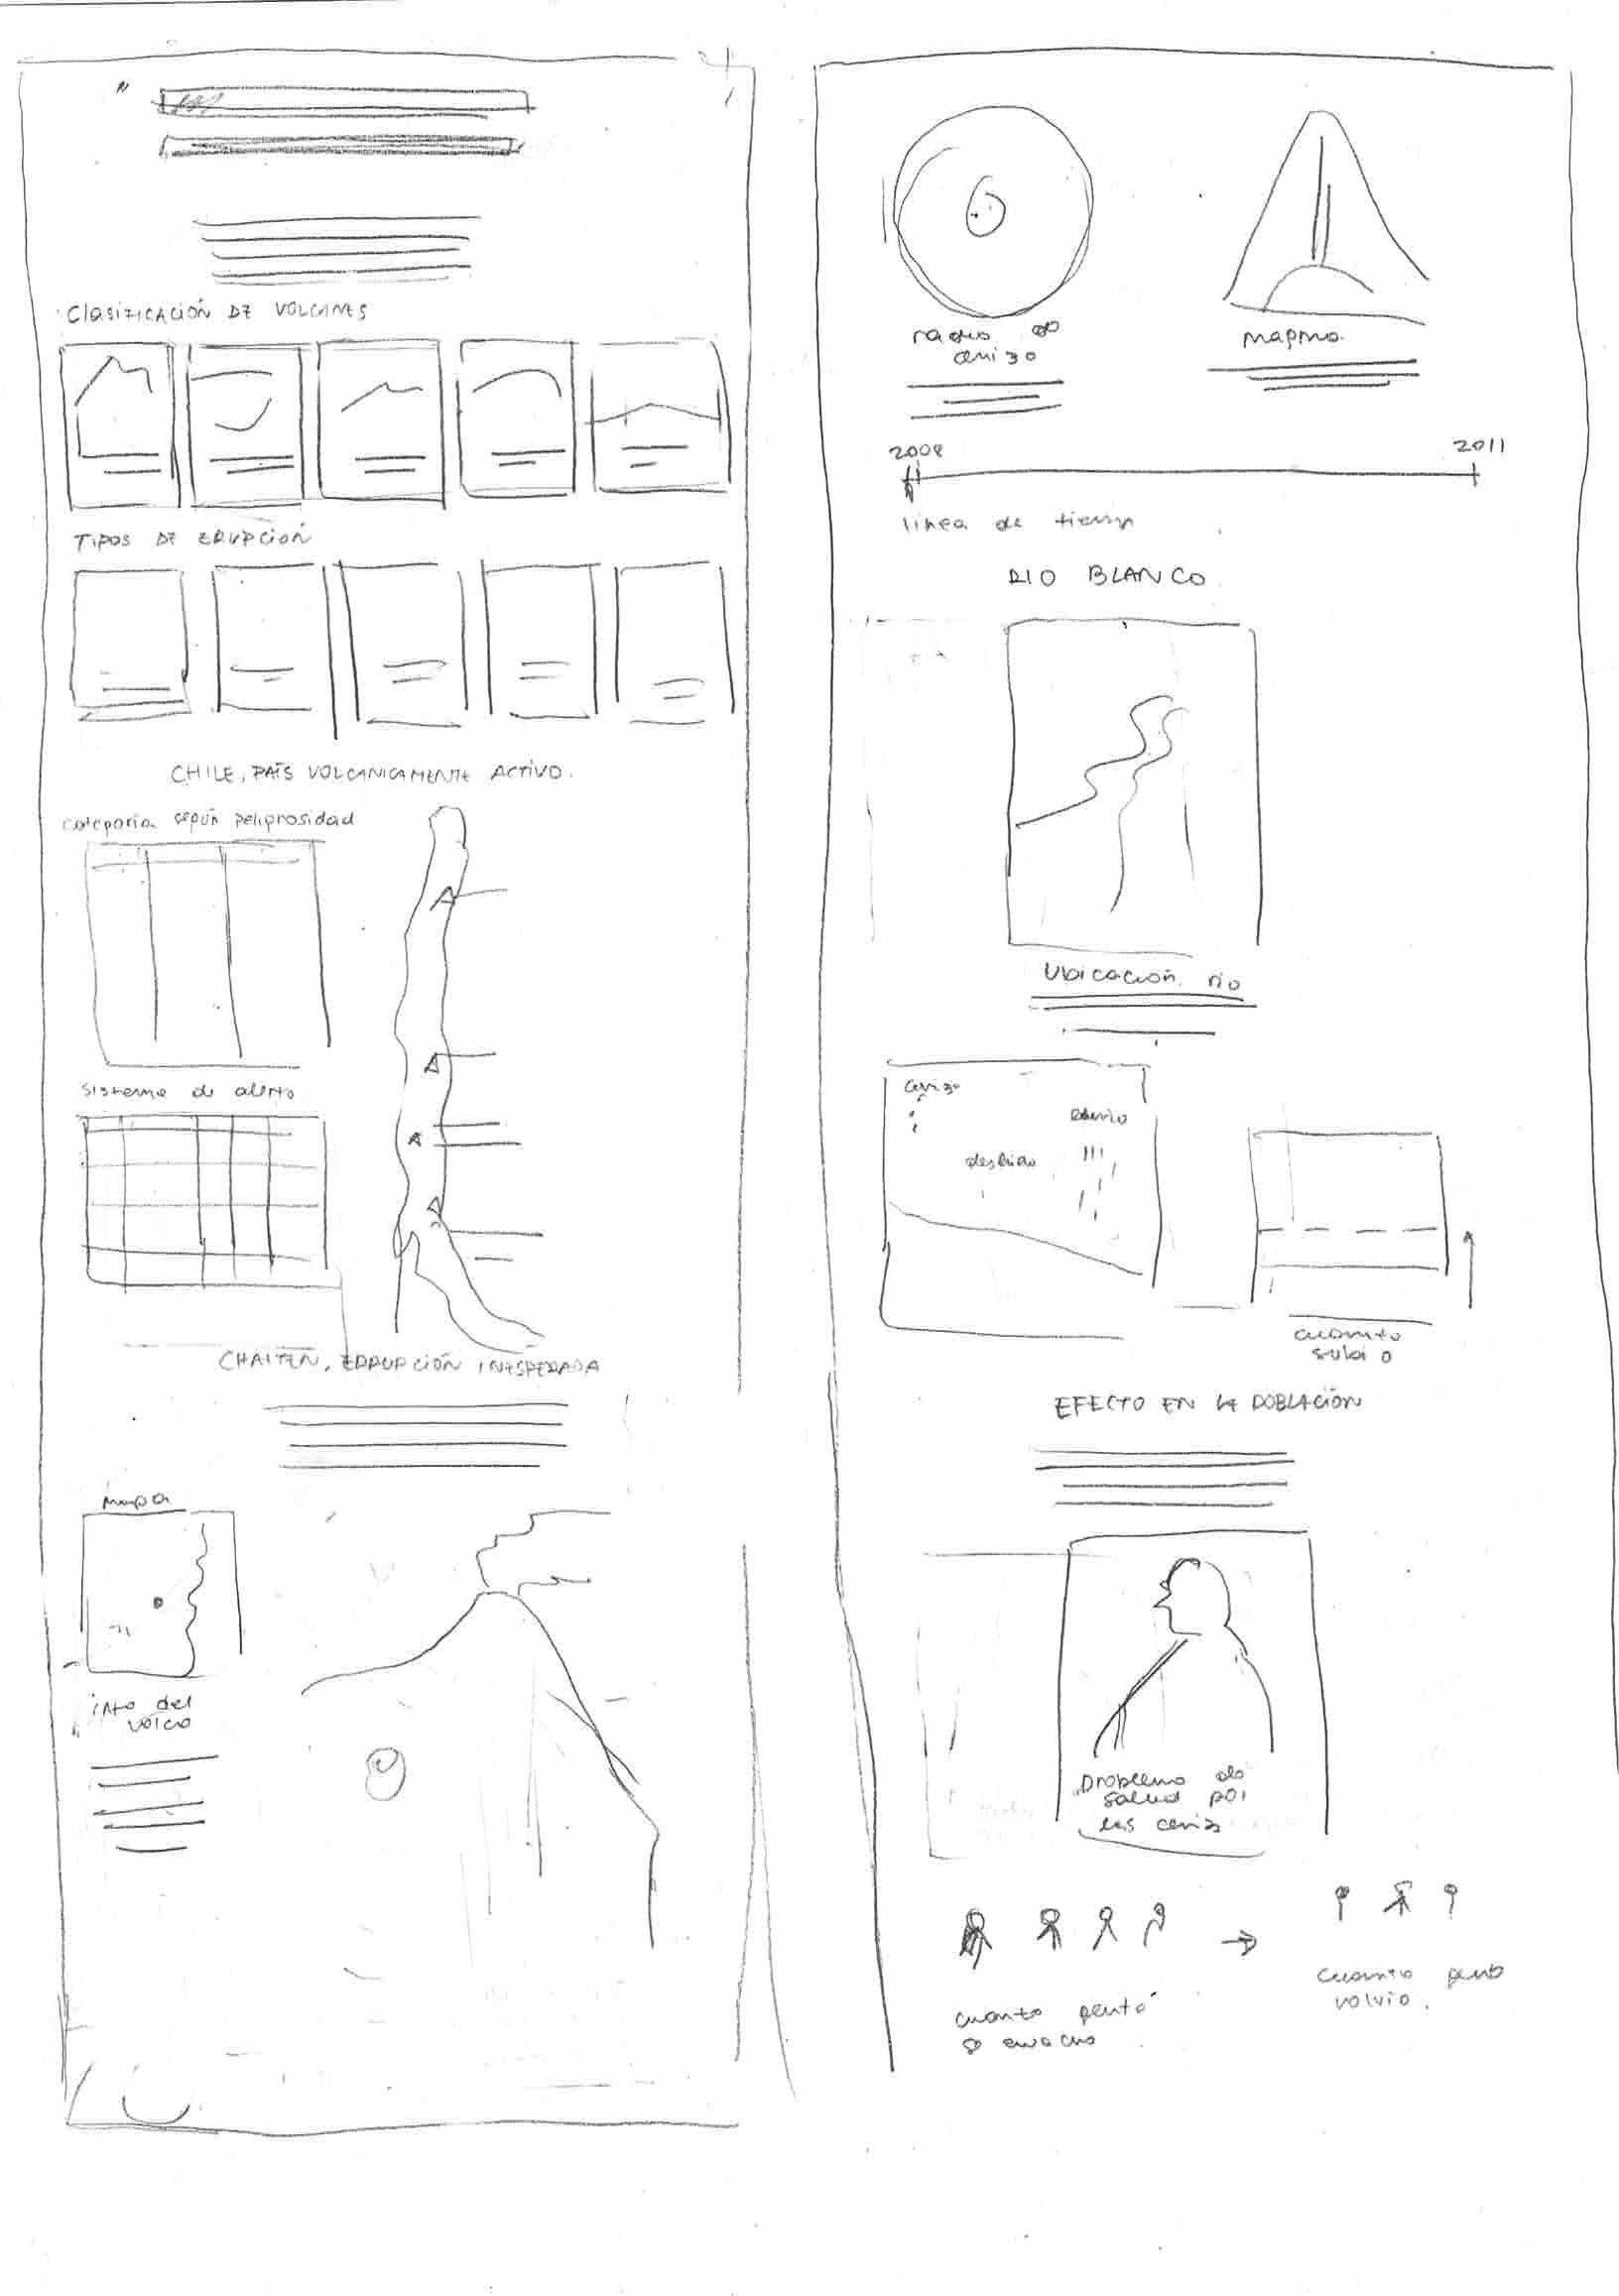 Clasificación DE VOLCANES
TIPOS DE ERUPCIÓN
CHILE, PAÍS VOLCANICAMENTE ACTIVO.
categoria según peligrosidad
sistema de alerta
CHAITEN, ERRUPCIÓN INESPERADA
mapa
info del
volcan
radio de
ceniza
magma
2008 2011
linea de tiempo
RIO BLANCO
Ubicación rio
ceniza
deshielo
cuanto
subio
EFECTO EN LA POBLACIÓN
Problema de
salud por
las ceniz
cuanta gente
se evacuo
cuanta gente
volvio.